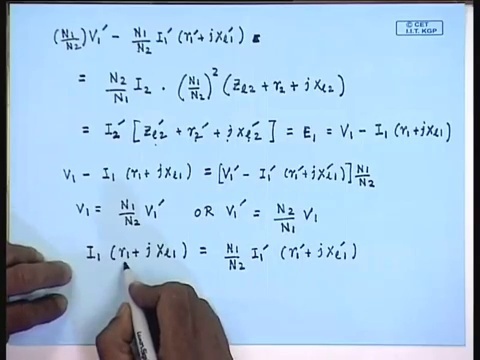 (N1/N2) V1′ − N1/N2 I1′ (r1′ + j Xl1′) =
= N2/N1 I2 · (N1/N2)² (Zl2 + r2 + j Xl2)
= I2′ [Zl2′ + r2′ + j Xl2′] = E1 = V1 − I1 (r1 + j Xl1)
V1 − I1 (r1 + j Xl1) = [V1′ − I1′ (r1′ + j Xl1′)] N1/N2
V1 = N1/N2 V1′ OR V1′ = N2/N1 V1
I1 (r1 + j Xl1) = N1/N2 I1′ (r1′ + j Xl1′)
© CET
I.I.T. KGP